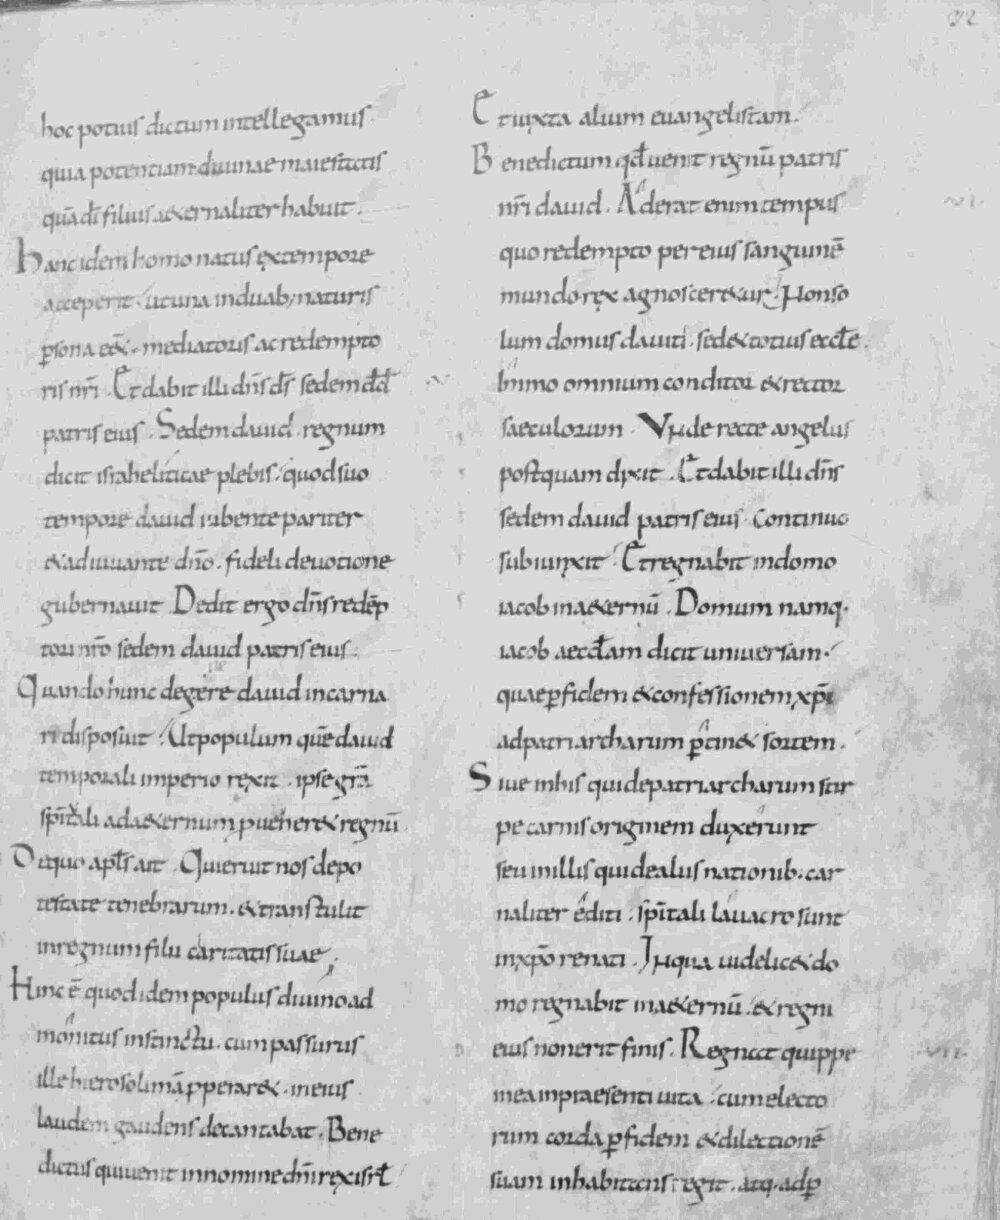 72
hoc potius dictum intellegamus
quia potentiam diuinae maiestatis
quā dī filius aeternaliter habuit.
Hanc idem homo natus ex tempore
acceperit. ut una in duab; naturis
ꝑsona eēt. mediatoris ac redempto
ris nr̄i. Et dabit illi dn̄s d̄s sedem dd̄
patris eius. Sedem dauid. regnum
dicit israheliticae plebis. quod suo
tempore dauid iubente pariter
& adiuuante dn̄o. fideli deuotione
gubernauit. Dedit ergo dn̄s redēp
tori nr̄o sedem dauid patris eius.
Quando hunc degere dauid incarna
ri disposuit. Ut populum quē dauid
temporali imperio rexit. ipse gr̄a
spīritali ad aeternum proueheret regnū
De quo apl̄s ait. Qui eruit nos de po
testate tenebrarum. & transtulit
in regnum filii caritatis suae.
Hinc ē quod idem populus diuino ad
monitus instinctu. cum passurus
ille hierosolimā pperar&. in eius
laudem gaudens decantabat. Bene
dictus qui uenit in nomine dn̄i rex isrl̄
Et iuxta alium euangelistam.
Benedictum qd̄ uenit regnū patris
nr̄i dauid. Aderat enim tempus
·VI·
quo redempto per eius sanguinē
mundo rex agnosceretur. Non so
lum domus dauiti. sed & totius eccl̄e.
Immo omnium conditor & rector
saeculorum. Unde recte angelus
postquam dixit. Et dabit illi dn̄s
sedem dauid patris eius. Continuo
subiunxit. Et regnabit in domo
iacob in aeternū. Domum namq.
iacob aeccl̄am dicit uniuersam.
quae ꝑ fidem & confessionem xp̄i
ad patriarcharum ꝑtin& sortem.
Siue in his qui de patriarcharum stir
pe carnis originem duxerunt
seu in illis qui de aliis nationib. car
naliter editi. spīritali lauacro sunt
in xp̄o renati. In qua uidelic& do
mo regnabit in aeternū. & regni
eius non erit finis. Regnat quippe
·VII·
in ea in praesenti uita. cum electo
rum corda ꝑ fidem & dilectionē
suam inhabitans regit. atq. ad ꝑ